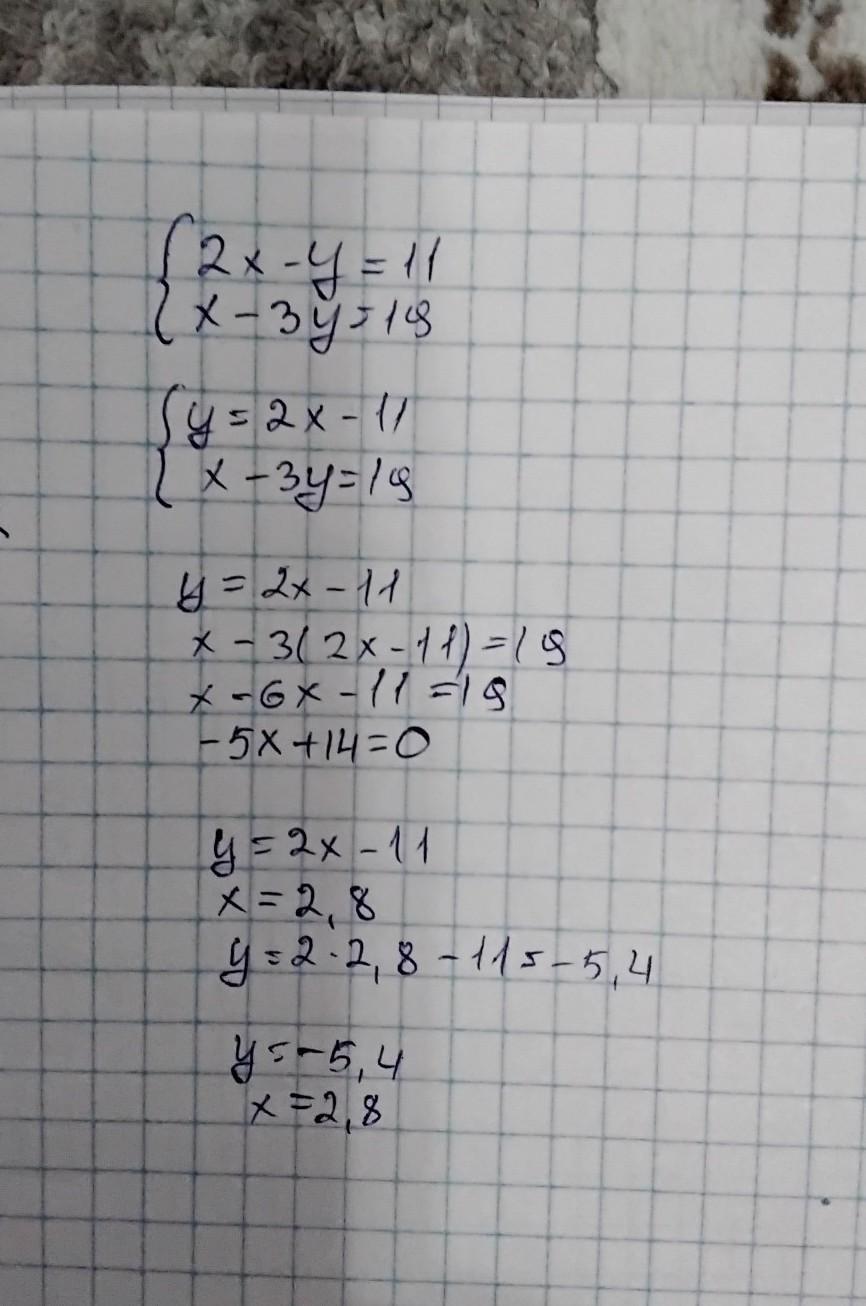 2x - y = 11
x - 3y = 19
y = 2x - 11
x - 3y = 19
y = 2x - 11
x - 3(2x - 11) = 19
x - 6x - 11 = 19
-5x + 14 = 0
y = 2x - 11
x = 2,8
y = 2 · 2,8 - 11 = -5,4
y = -5,4
x = 2,8